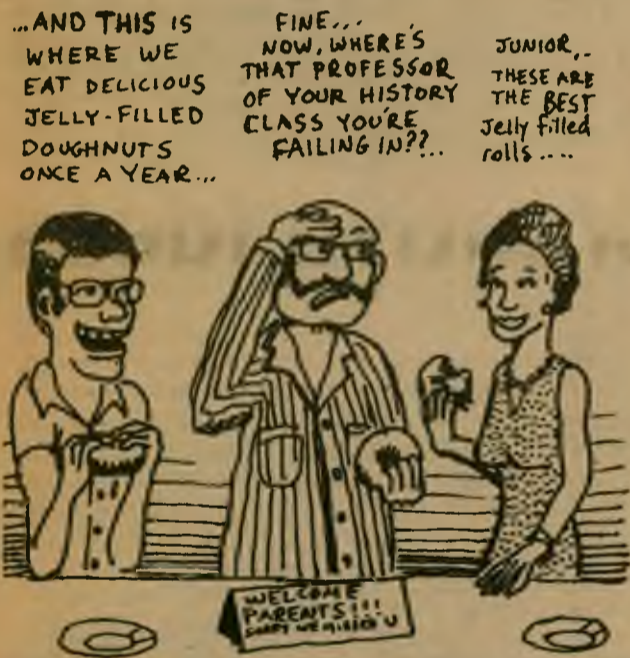 ...AND THIS IS
WHERE WE
EAT DELICIOUS
JELLY-FILLED
DOUGHNUTS
ONCE A YEAR...
FINE...
NOW, WHERE'S
THAT PROFESSOR
OF YOUR HISTORY
CLASS YOU'RE
FAILING IN??...
JUNIOR...
THESE ARE
THE BEST
Jelly filled
rolls....
WELCOME
PARENTS!!!
SORRY WE MISSED U